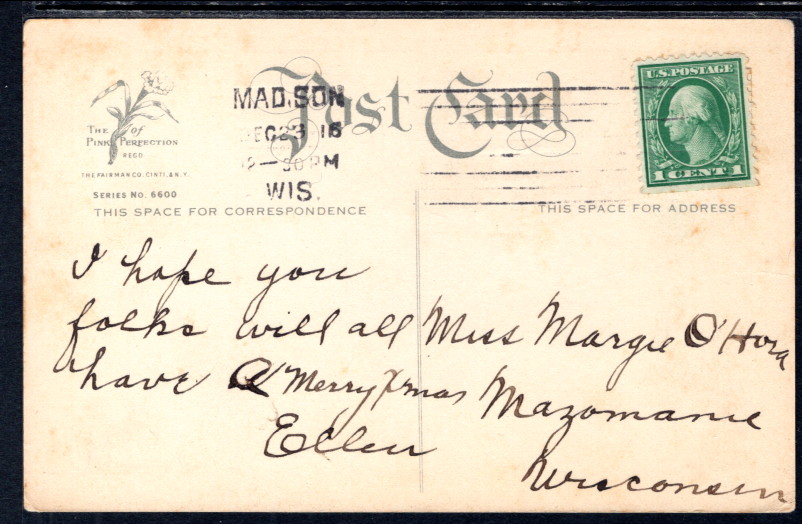 Post Card
The Pink of Perfection
REGD
THE FAIRMAN CO. CINTI. & N.Y.
SERIES No. 6600
MADISON
DEC 23 16
30 PM
WIS.
U.S. POSTAGE
1 CENT 1
THIS SPACE FOR CORRESPONDENCE
THIS SPACE FOR ADDRESS
I hope you
folks will all
have A Merry Xmas
Ellen
Miss Margie O'Hora
Mazomanie
Wisconsin